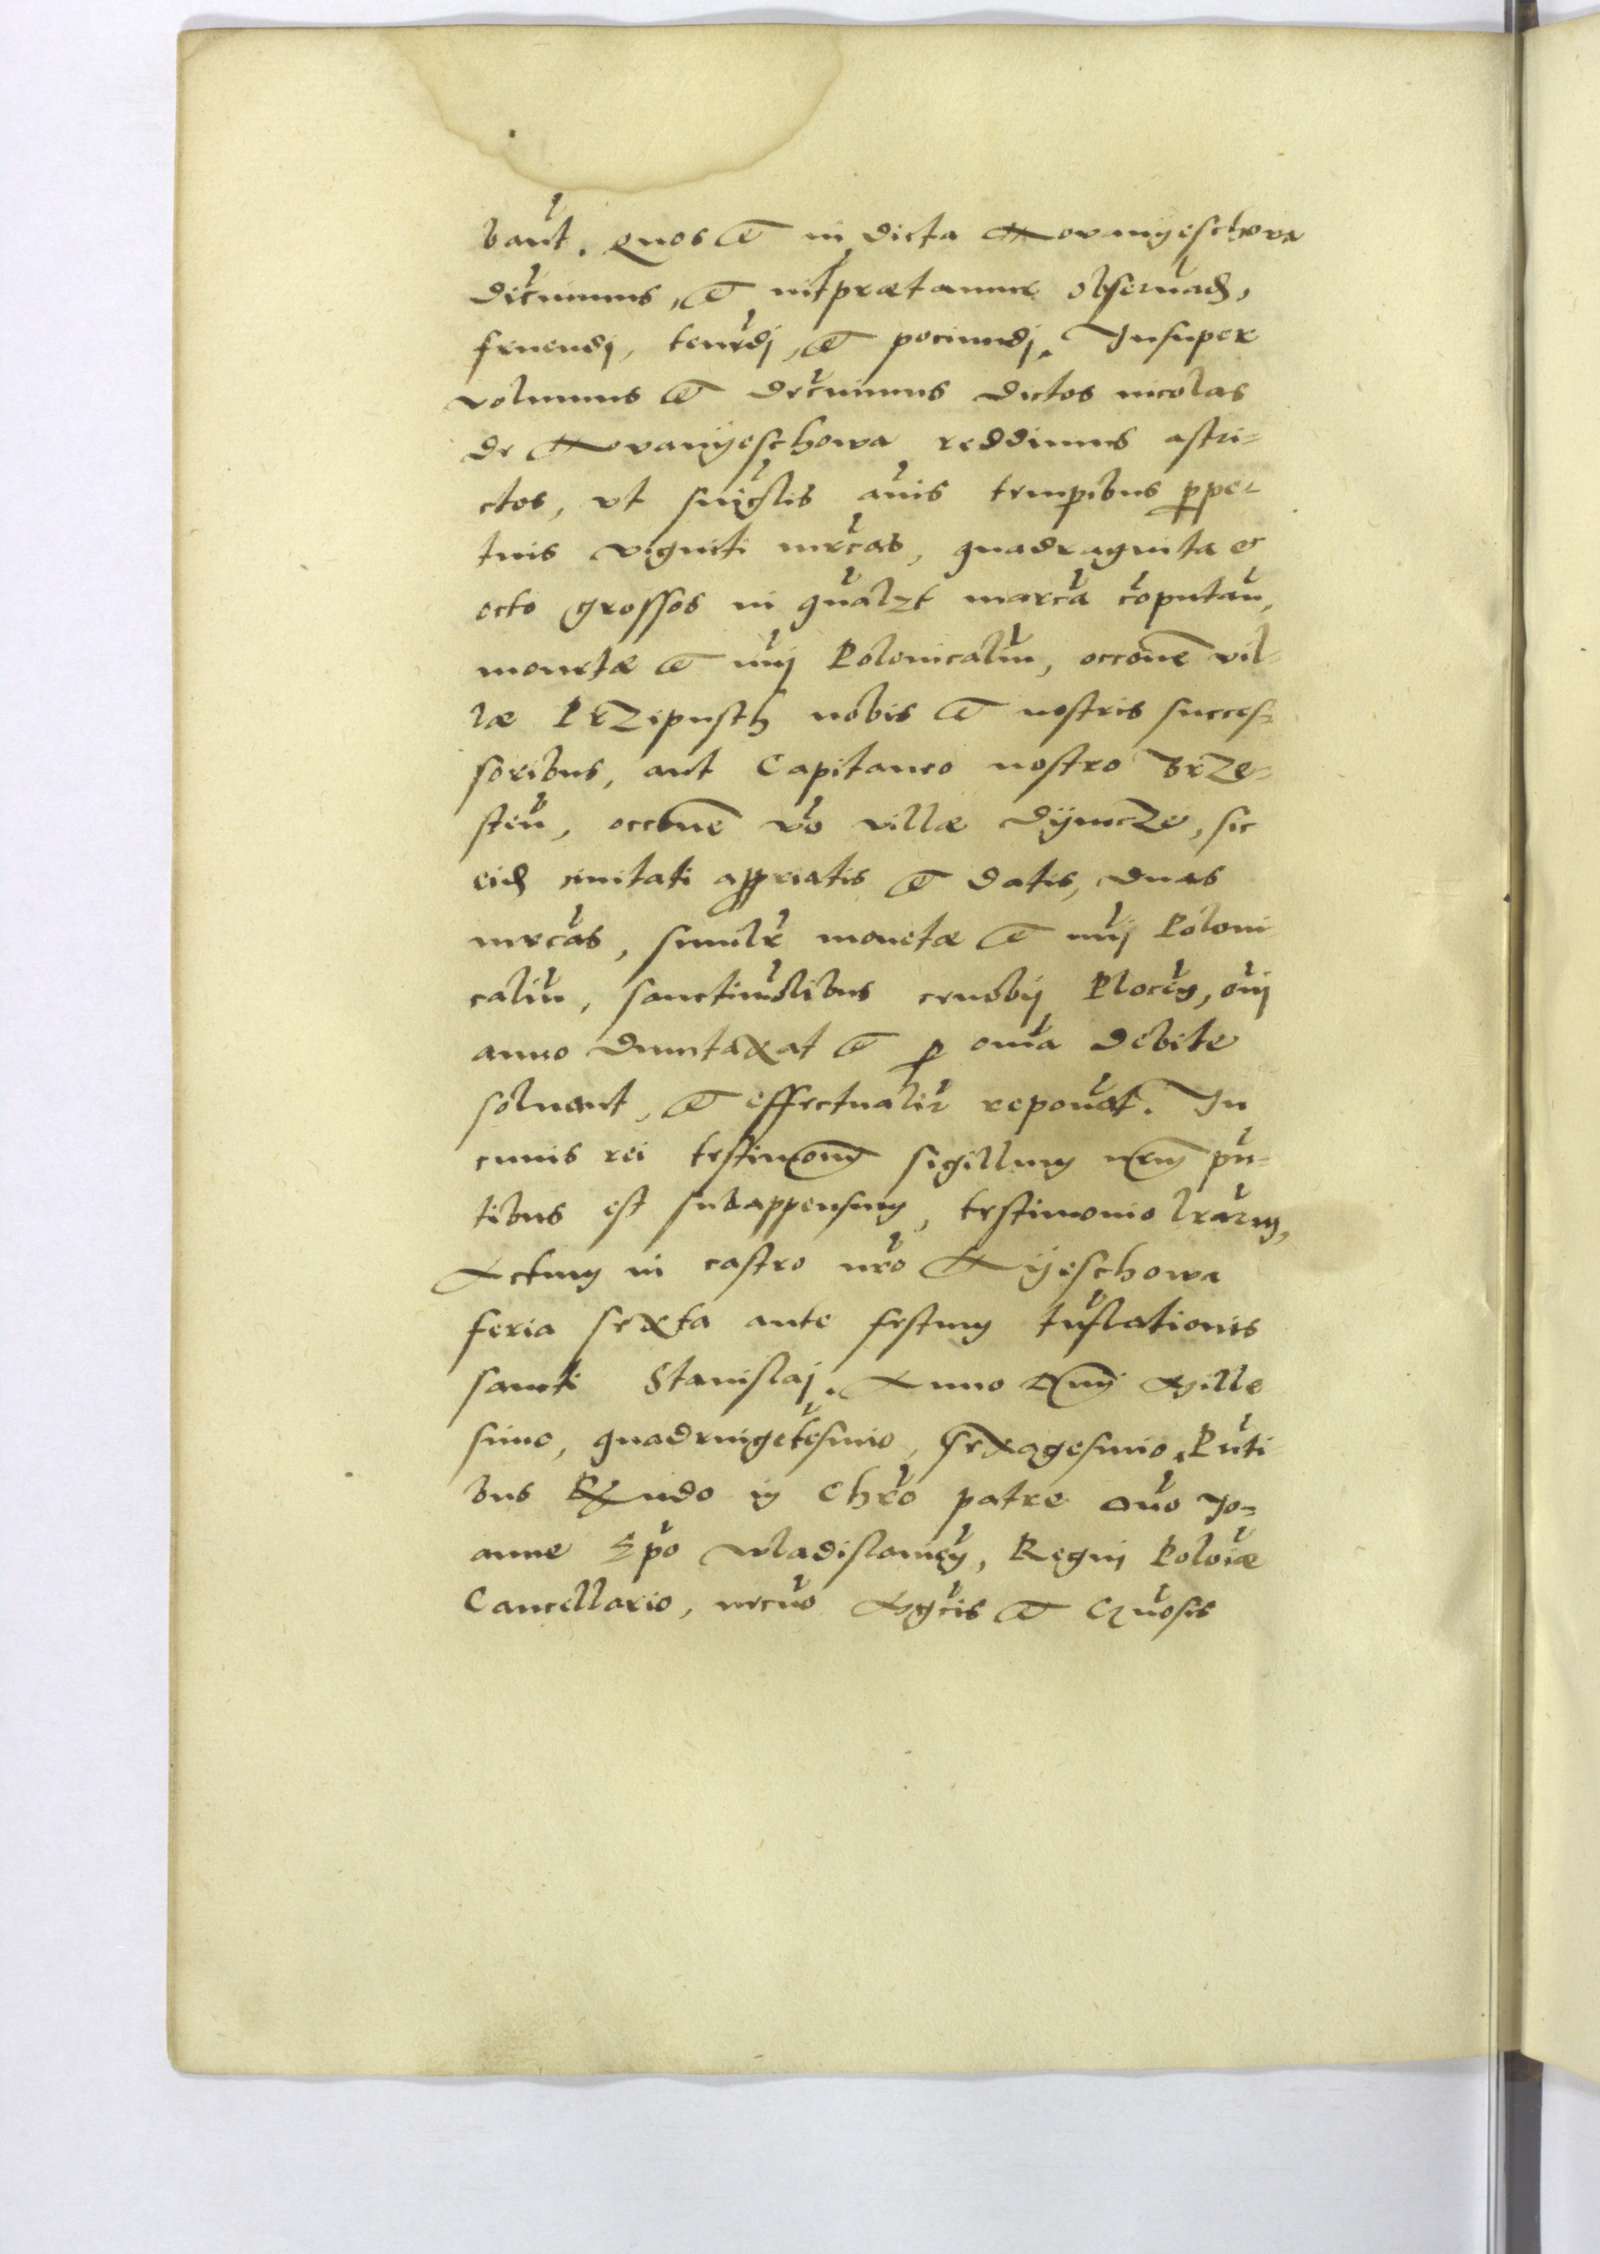 bant. Quos et in dicta Novanyeschova
decimus, et intpraetamur observand,
fruendj, tenedj, et pociundj. Insuper
volumus et decimus dictos incolas
de Novanyeschowa reddimus astri-
ctos, vt singlis anis tempibus pper
tuis viginti mrcas, quadraginta et
octo grossos in qualzt marca coputan,
monetae et nuj Polonicaliu, occone vil-
lae Przipusth nobis et nostris succes-
soribus, aut Capitaneo nostro Brze-
sten, occone vo villae Dymcze, sic
eid civitati appriatis et datis, duas
mrcas, similr monetae et nuj Poloni
caliu, sanctimolibus cenobij Plocen, oni
anno dumtaxat et p omia debite
solvant, et effectualir reponat. In
cuius rei testimonm sigillum nrm pn-
tibus est subappensum, testimonio lrarum,
Actum in castro nro Nyeschowa
feria sexta ante festum tnslationis
sancti Stanislaj. Anno Dnj Mille
simo, quadringetesimo, sexagesimo. Pnti
bus Rndo in Chro patre Dno Jo-
anne Epo Wladislavien, Regni Poloiae
Cancellario, necno Mgcis et Gnosis